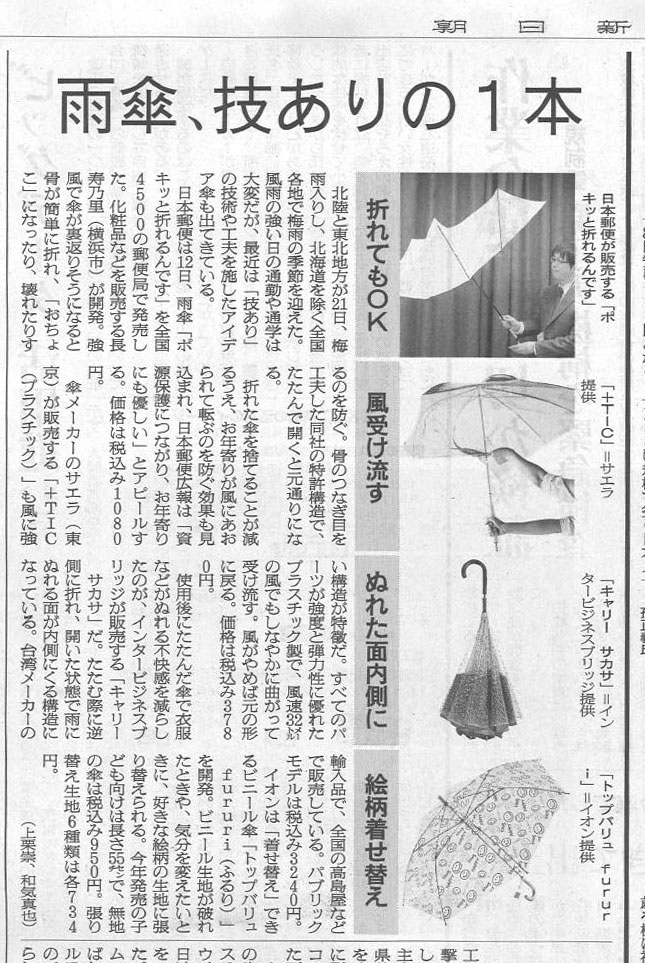 朝日新
雨傘、技ありの1本
折れてもOK
風受け流す
ぬれた面内側に
絵柄着せ替え
日本郵便が販売する「ポ
キッと折れるんです」
「+TIC」=サエラ
提供
「キャリー サカサ」=イン
タービジネスブリッジ提供
「トップバリュ furur
i」=イオン提供
北陸と東北地方が21日、梅
雨入りし、北海道を除く全国
各地で梅雨の季節を迎えた。
風雨の強い日の通勤や通学は
大変だが、最近は「技あり」
の技術や工夫を施したアイデ
ア傘も出てきている。
日本郵便は12日、雨傘「ポ
キッと折れるんです」を全国
4500の郵便局で発売し
た。化粧品などを販売する長
寿乃里(横浜市)が開発。強
風で傘が裏返りそうになると
骨が簡単に折れ、「おちょ
こ」になったり、壊れたりす
るのを防ぐ。骨のつなぎ目を
工夫した同社の特許構造で、
たたんで開くと元通りにな
る。
折れた傘を捨てることが減
るうえ、お年寄りが風にあお
られて転ぶのを防ぐ効果も見
込まれ、日本郵便広報は「資
源保護につながり、お年寄り
にも優しい」とアピールす
る。価格は税込み1080
円。
傘メーカーのサエラ(東
京)が販売する「+TIC
(プラスチック)」も風に強
い構造が特徴だ。すべてのパ
ーツが強度と弾力性に優れた
プラスチック製で、風速32㍍
の風でもしなやかに曲がって
受け流す。風がやめば元の形
に戻る。価格は税込み378
0円。
使用後にたたんだ傘で衣服
などがぬれる不快感を減らし
たのが、インタービジネスブ
リッジが販売する「キャリー
サカサ」だ。たたむ際に逆
側に折れ、開いた状態で雨に
ぬれる面が内側にくる構造に
なっている。台湾メーカーの
輸入品で、全国の高島屋など
で販売している。パブリック
モデルは税込み3240円。
イオンは「着せ替え」でき
るビニール傘「トップバリュ
fururi(ふるり)」
を開発。ビニール生地が破れ
たときや、気分を変えたいと
きに、好きな絵柄の生地に張
り替えられる。今年発売の子
ども向けは長さ55㌢で、無地
の傘は税込み950円。張り
替え生地6種類は各734
円。
(上栗崇、和気真也)